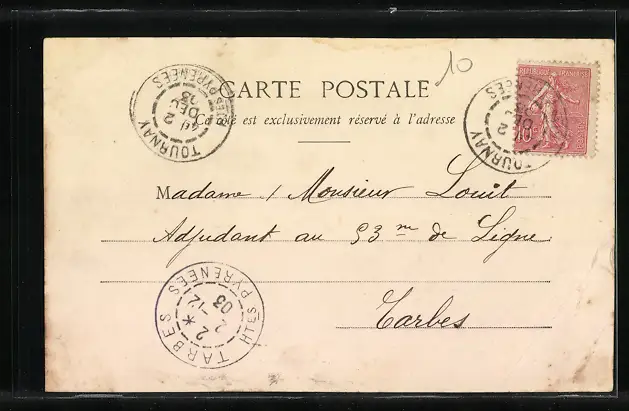 10
CARTE POSTALE
Ce côté est exclusivement réservé à l'adresse
REPUBLIQUE FRANÇAISE
10c
TOURNAY
HTES PYRENEES
2
DEC
03
TOURNAY
2
Madame / Monsieur Louit
Adjudant au 53me de Ligne
Tarbes
TARBES
HTES PYRENEES
2 *
2 -12
03